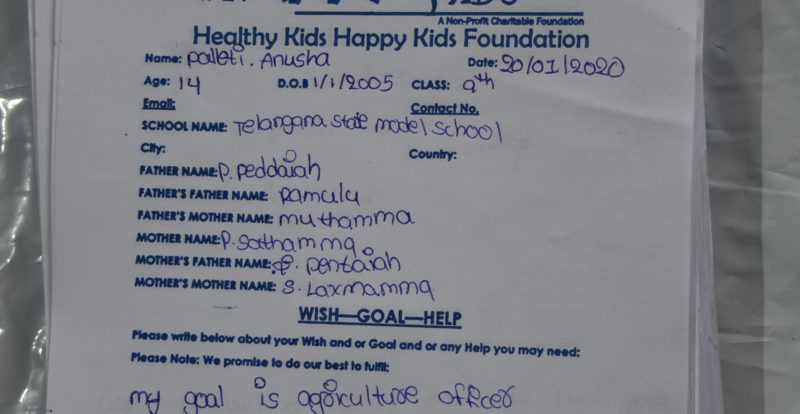 A Non-Profit Charitable Foundation
Healthy Kids Happy Kids Foundation
Name: palleti. Anusha Date: 20/01/2020
Age: 14 D.O.B 1/1/2005 CLASS: 9th
Email: Contact No.
SCHOOL NAME: Telangana state model school
City: Country:
FATHER NAME: P. peddaiah
FATHER'S FATHER NAME: Ramulu
FATHER'S MOTHER NAME: muthamma
MOTHER NAME: P. Sathamma
MOTHER'S FATHER NAME: S. pentaiah
MOTHER'S MOTHER NAME: S. Laxmamma
WISH—GOAL—HELP
Please write below about your Wish and or Goal and or any Help you may need:
Please Note: We promise to do our best to fulfil:
my goal is agriculture officer